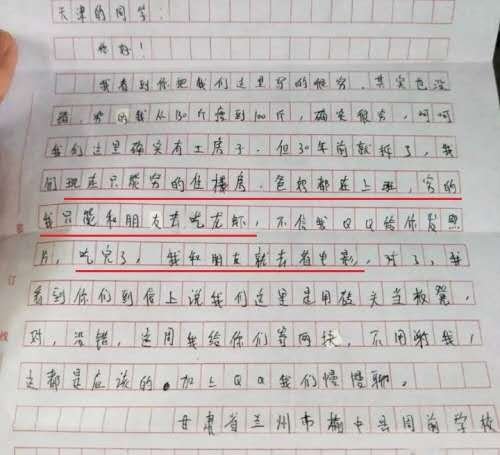 天津的同学：
你好！
我看到你把我们这里写的很穷，其实也没
错，穷的我从130斤瘦到100斤，确实很穷，呵呵
我们这里确实有土房子，但30年前就拆了，我
们现在只能穷的住楼房，爸妈都在上班，穷的
我只能和朋友去吃龙虾，不信我QQ给你发照
片，吃完了，我和朋友就去看电影，对了，我
看到你们到信上说我们这里是用砖头当板凳，
对，没错，这周我给你们寄两块，不用谢我，
这都是应该的。加上QQ我们慢慢聊。
甘肃省兰州市榆中县周前学校
订